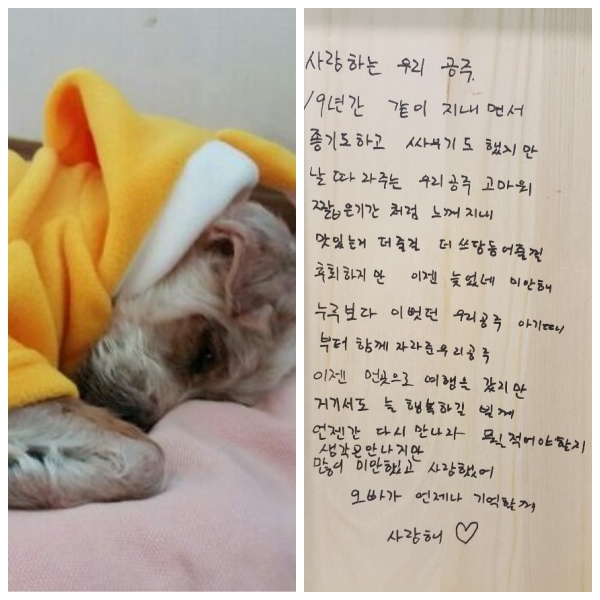 사랑하는 우리 공주.
19년간 같이 지내면서
좋기도하고 싸우기도 했지만
날 따라주는 우리공주 고마워
짧은기간 처럼 느껴지네
맛있는거 더줄걸 더 쓰담듬어줄껄
후회하지만 이젠 늦었네 미안해
누구보다 이뻤던 우리공주 아기때
부터 함께 자라준우리공주
이젠 먼곳으로 여행을 갔지만
거기서도 늘 행복하길 빌께
언젠간 다시 만나자 뭘 적어야할지
생각은안나지만
많이 미안했고 사랑했어
오빠가 언제나 기억할께
사랑해 ♡